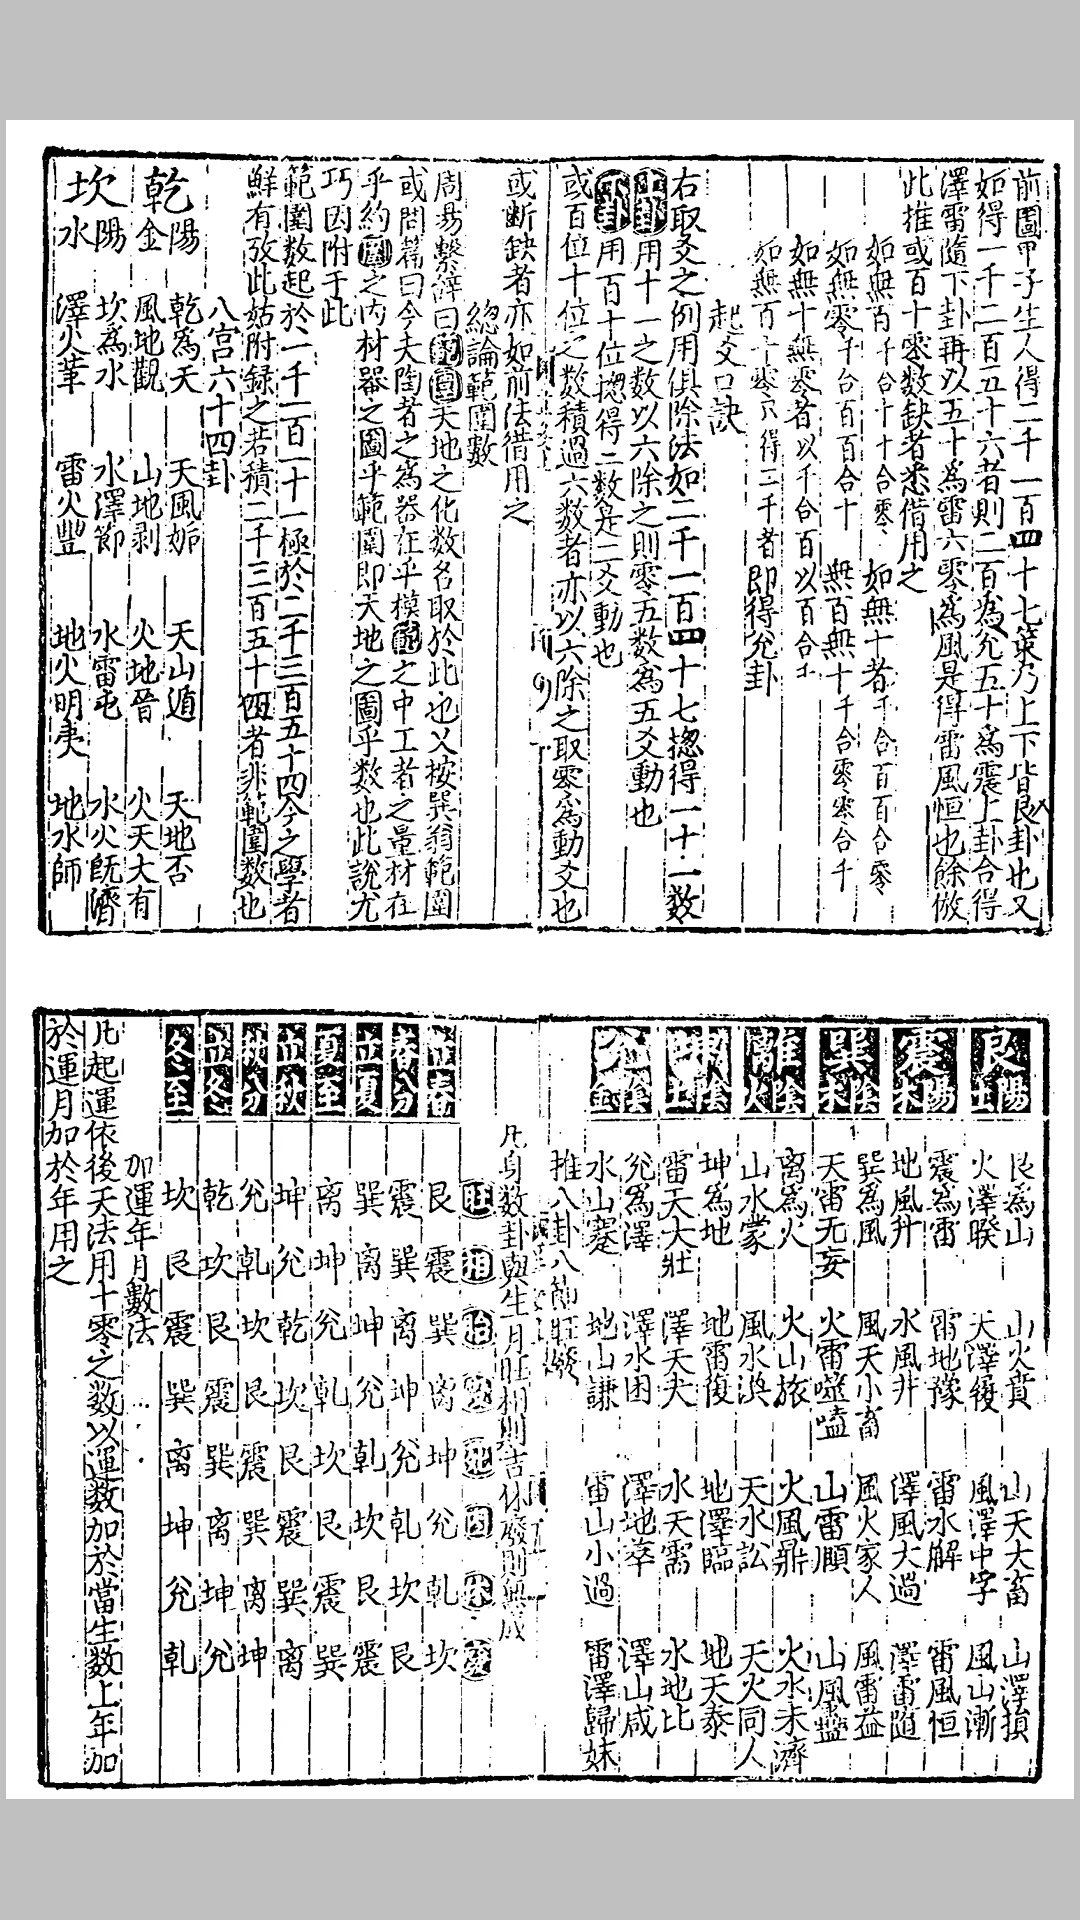 前圖甲子生人得二千一百四十七策乃上下皆艮卦也又
如得一千二百五十六者則二百為兊五十為震上卦合得
澤雷隨下卦再以五十為雷六零為風是得雷風恒也餘倣
此推或百十零数缺者悉借用之
如無百千合千十合零 如無十者千合百百合零
如無零千合百百合十 無百無十千合零零合千
如無十無零者以千合百以百合十
如無百十零只得二千者即得兊卦
起爻口訣
右取爻之例用俱除法如二千一百四十七揔得一十二数
上卦用十一之数以六除之則零五数為五爻動也
下卦用百十位揔得二数是二爻動也
或百位十位之数積過六数者亦以六除之取零為動爻也
或断缺者亦如前法借用之
總論範圍數
周易繫辭曰範圍天地之化数名取於此也又按巽翁範圍
或問篇曰今夫陶者之為器在乎模範之中工者之量材在
乎約圍之内材器之圖乎範圍即天地之圖乎数也此說尤
巧因附于此
範圍数起於一千一百一十一極於二千三百五十四今之學者
鮮有攷此姑附録之若積二千三百五十四者非範圍数也
八宫六十四卦
乾 陽金 乾為天 天風姤 天山遁 天地否
風地觀 山地剥 火地晉 火天大有
坎 陽水 坎為水 水澤節 水雷屯 水火旣濟
澤火革 雷火豐 地火明夷 地水師
艮 陽土 艮為山 山火賁 山天大畜 山澤損
火澤暌 天澤履 風澤中孚 風山漸
震 陽木 震為雷 雷地豫 雷水解 雷風恒
地風升 水風井 澤風大過 澤雷隨
巽 陰木 巽為風 風天小畜 風火家人 風雷益
天雷无妄 火雷噬嗑 山雷頤 山風蠱
離 陰火 离為火 火山旅 火風鼎 火水未濟
山水蒙 風水渙 天水訟 天火同人
坤 陰土 坤為地 地雷復 地澤臨 地天泰
雷天大壯 澤天夬 水天需 水地比
兊 陰金 兊為澤 澤水困 澤地萃 澤山咸
水山蹇 地山謙 雷山小過 雷澤歸妹
推八卦八節旺廢
凡身数卦與生月旺相則吉休廢則無成
旺 相 胎 没 死 囚 休 廢
立春 艮 震 巽 离 坤 兊 乹 坎
春分 震 巽 离 坤 兊 乹 坎 艮
立夏 巽 离 坤 兊 乹 坎 艮 震
夏至 离 坤 兊 乹 坎 艮 震 巽
立秋 坤 兊 乾 坎 艮 震 巽 离
秋分 兊 乹 坎 艮 震 巽 离 坤
立冬 乾 坎 艮 震 巽 离 坤 兊
冬至 坎 艮 震 巽 离 坤 兊 乹
加運年月數法
凡起運依後天法用十零之数以運数加於當生数上年加
於運月加於年用之